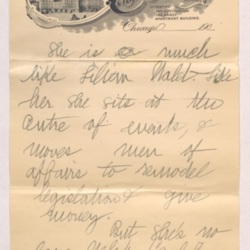 APARTMENT BUILDING.
Chicago 190
She is much
like Lilian Wald. Like
her she sits at the
centre of events, &
moves men of
affairs to remodel
legislation & give
money.
But she's no